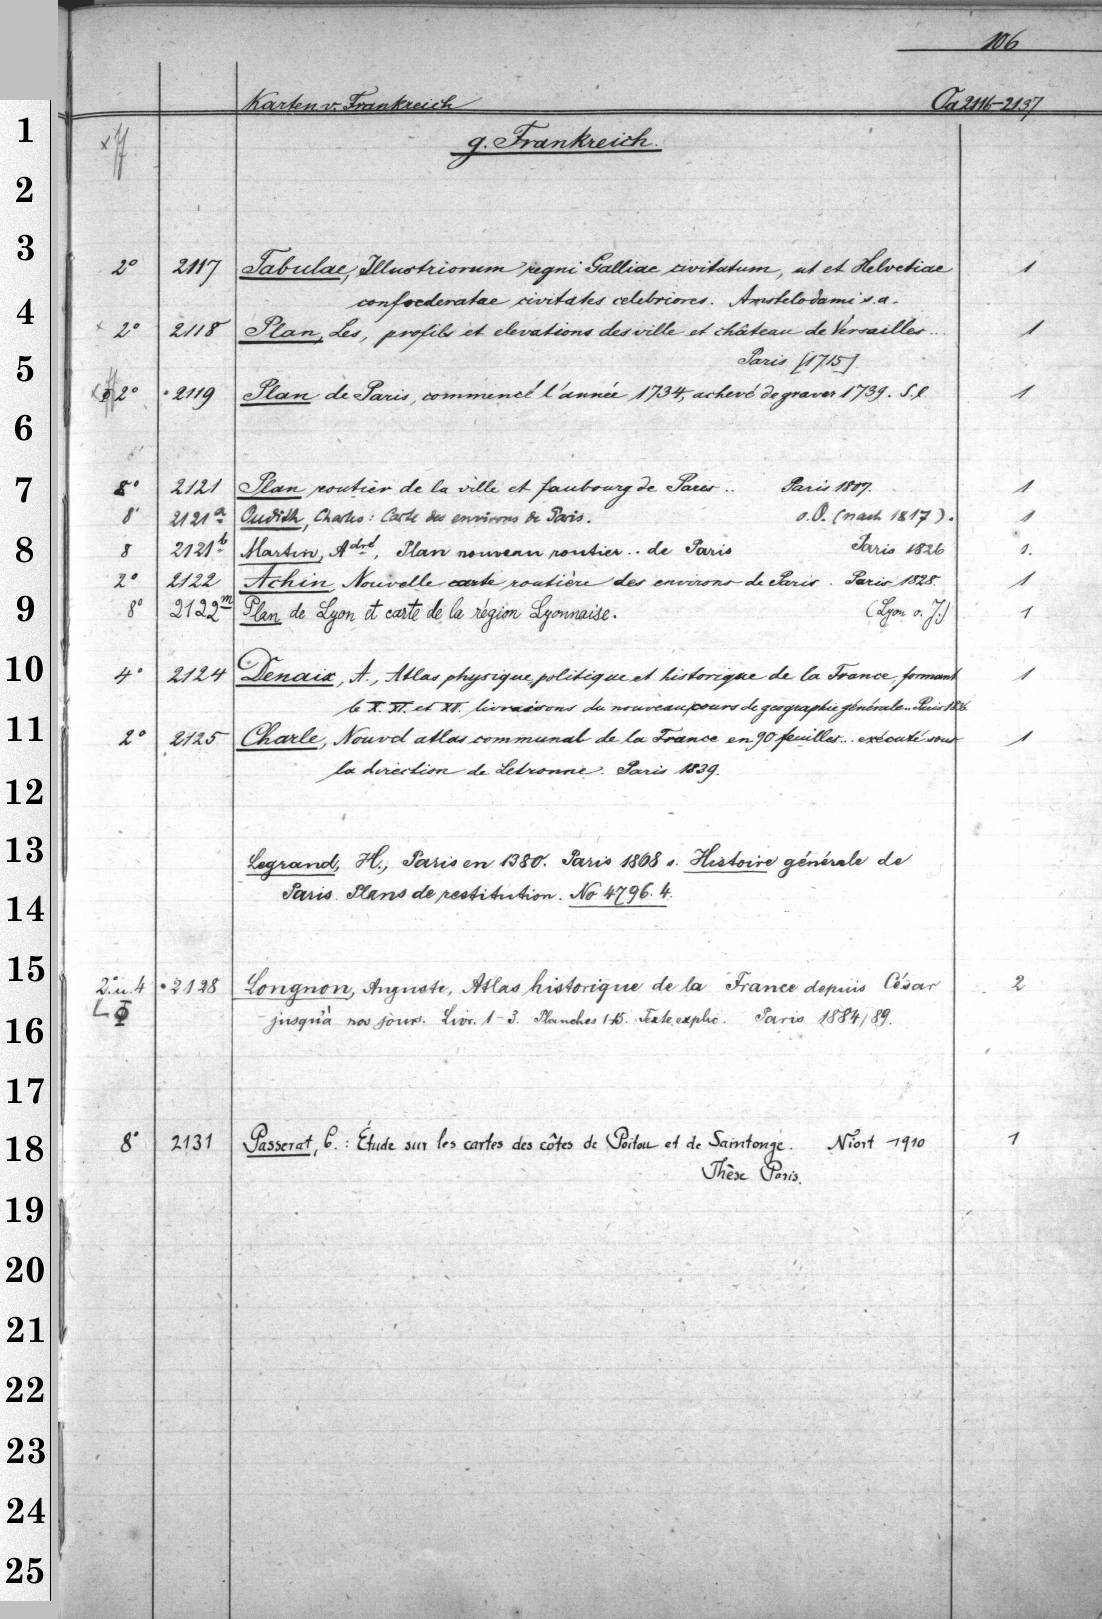 106
Karten v. Frankreich Oa 2116-2137
g. Frankreich.
2° 2117 Tabulae, Illustriorum regni Galliae civitatum, ut et Helvetiae 1
confoederatae civitates celebriores. Amstelodami s.a.
× 2° 2118 Plan, Les, profils et elevations des ville et château de Versailles .. 1
Paris [1715]
2° 2119 Plan de Paris, commencé l'année 1734, achevé de graver 1739. S.l. 1
8° 2121 Plan routier de la ville et faubourg de Paris .. Paris 1817. 1
8° 2121a Oudith, Charles: Carte des environs de Paris. o.O. (nach 1817). 1
8 2121b Martin, Adrd, Plan nouveau routier .. de Paris Paris 1826 1.
2° 2122 Achin, Nouvelle carte routière des environs de Paris. Paris 1828. 1
8° 2122m Plan de Lyon et carte de la région Lyonnaise. (Lyon o. J.) 1
4° 2124 Denaix, A., Atlas physique, politique et historique de la France, formant 1
le X. XI. et XII. livraisons du nouveau cours de geographie générale .. Paris
2° 2125 Charle, Nouvel atlas communal de la France en 90 feuilles .. exécuté sous 1
la direction de Letronne. Paris 1839.
Legrand, H., Paris en 1380. Paris 1868 s. Histoire générale de
Paris. Plans de restitution. No 4796.4.
2° u. 4 2128 Longnon, Auguste, Atlas historique de la France depuis César 2
L Φ jusqu'à nos jours. Livr. 1-3. Planches 1-15. Texte explic. Paris 1884/89.
8° 2131 Passerat, C.: Étude sur les cartes des côtes de Poitou et de Saintonge. Niort 1910 1
Thèse Paris.
1
2
3
4
5
6
7
8
9
10
11
12
13
14
15
16
17
18
19
20
21
22
23
24
25